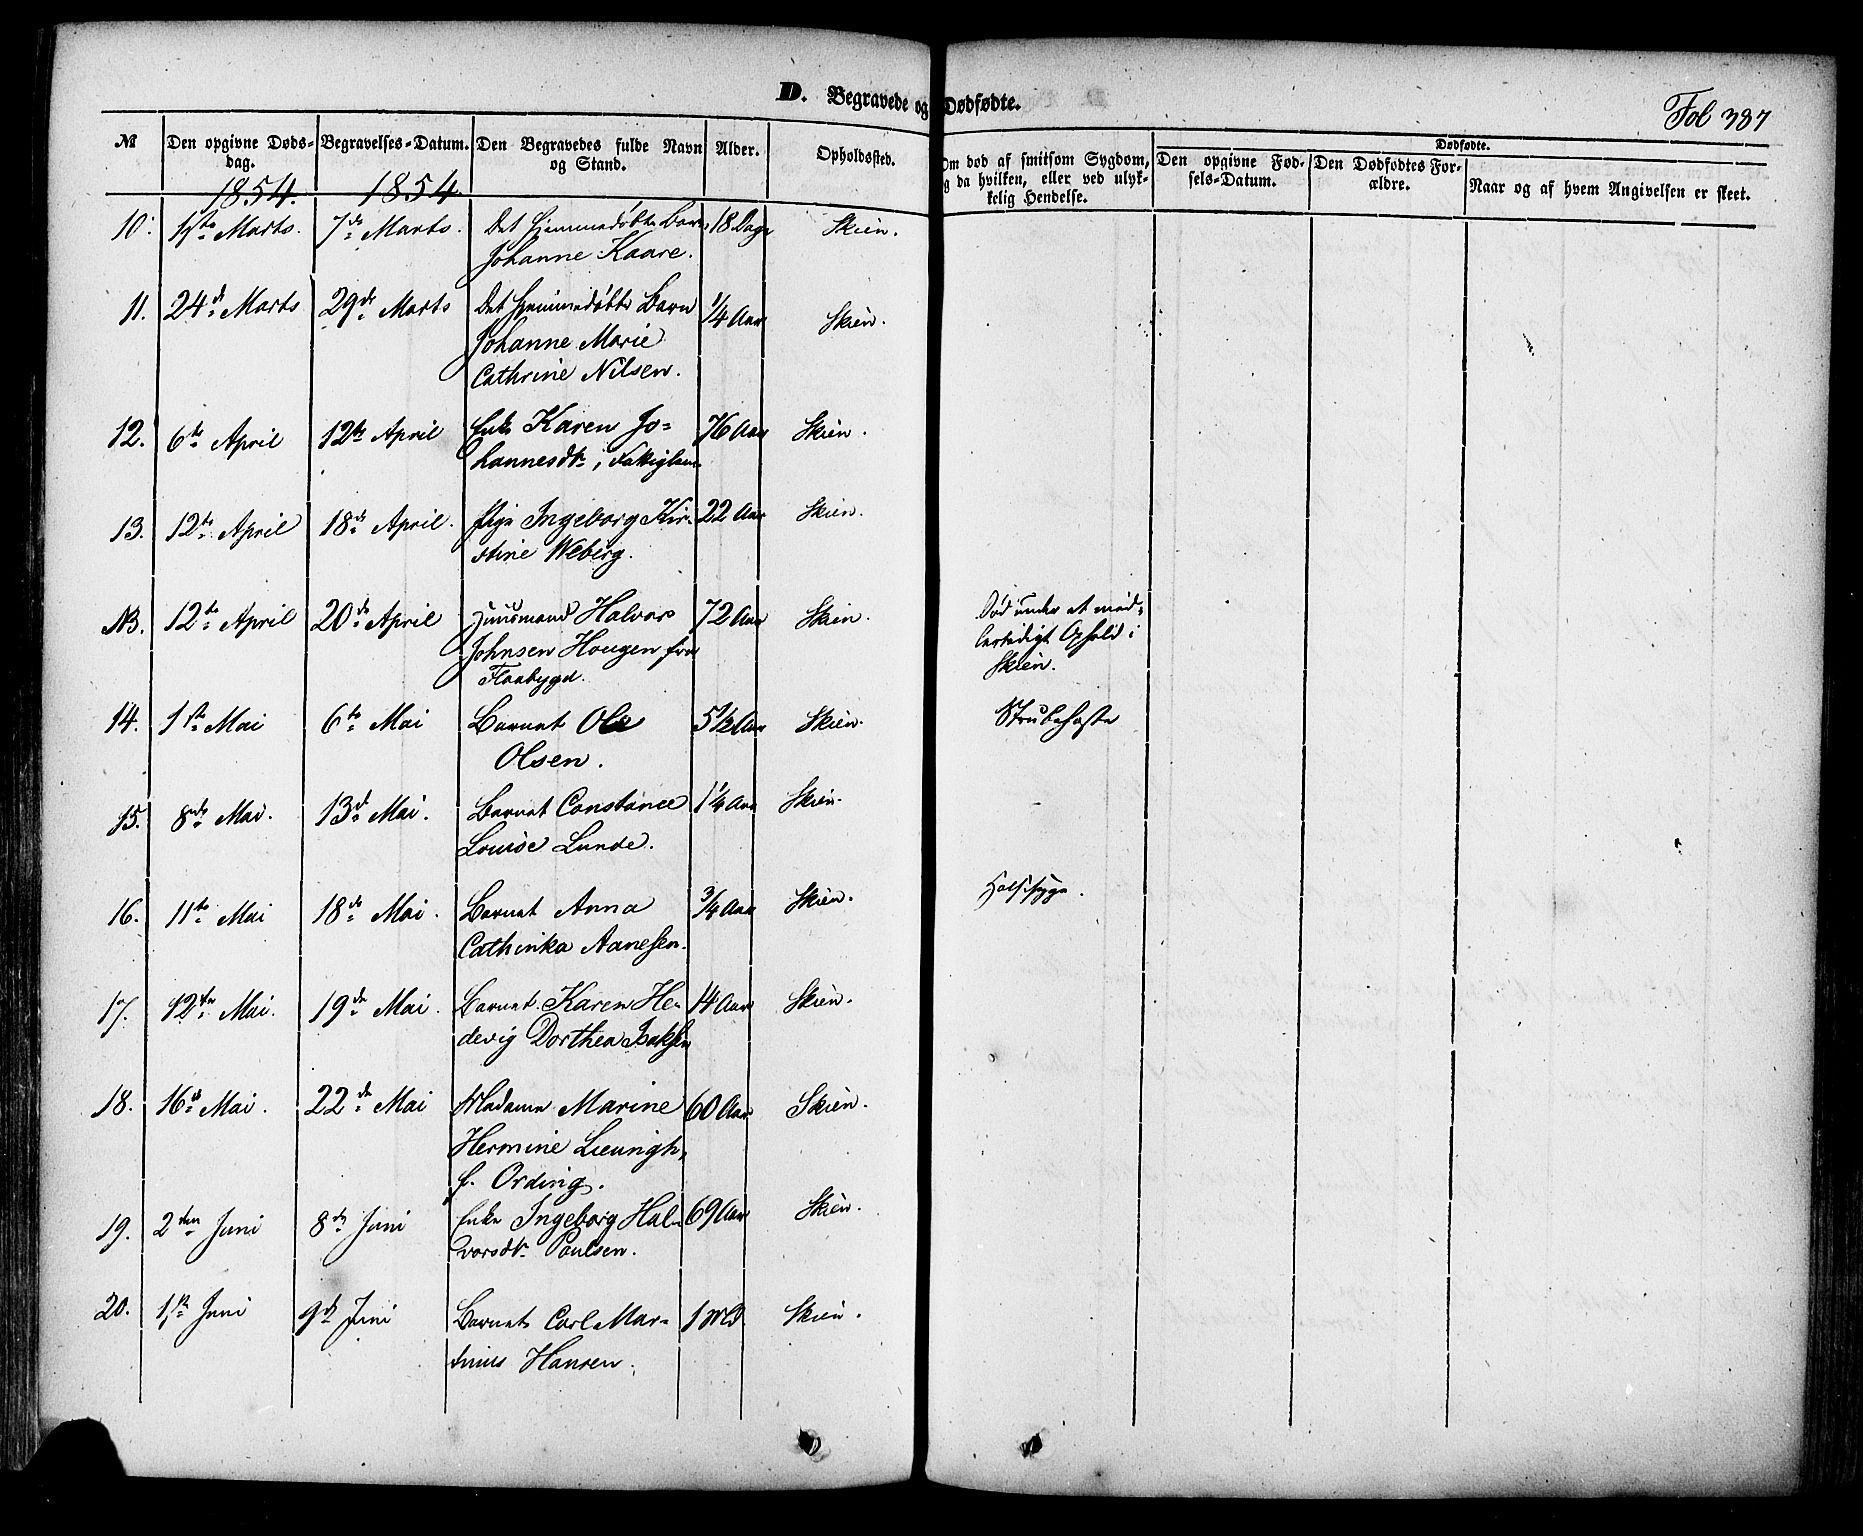 D. Begravede og Dødfødte.
Fol 387
№
Den opgivne Døds-
dag.
Begravelses-Datum.
Den Begravedes fulde Navn
og Stand.
Alder.
Opholdssted.
Om død af smitsom Sygdom,
og da hvilken, eller ved ulyk-
kelig Hendelse.
Dødfødte.
Den opgivne Fød-
sels-Datum.
Den Dødfødtes For-
ældre.
Naar og af hvem Angivelsen er skeet.
1854. 1854.
10. 1ste Marts. 7de Marts. Det hjemmedøbte Barn 18 Dage Skien.
Johanne Kaare.
11. 24de Marts 29de Marts Det hjemmedøbte Barn 1/4 Aar Skien.
Johanne Marie
Cathrine Nilsen.
12. 6te April 12te April Enke Karen Jo= 76 Aar Skien.
hannesdtr i Fattighuus
13. 12te April 18de April. Pige Ingeborg Kir- 22 Aar Skien.
stine Weberg.
NB. 12te April 20de April Huusmand Halvor 72 Aar Skien. Død under et mid=
Johnsen Hougen fra lertidigt Ophold i
Flaabygd. Skien.
14. 1ste Mai 6te Mai Barnet Ole 5 1/2 Aar Skien. Strubehoste
Olsen.
15. 8de Mai. 13de Mai. Barnet Constance 1 1/4 Aar Skien.
Louise Lunde.
16. 11te Mai 18de Mai. Barnet Anna 3/4 Aar Skien. Halssyge.
Cathinka Aanesen.
17. 12te Mai. 19de Mai. Barnet Karen He- 14 Aar Skien.
devig Dorthea Isaksen
18. 16de Mai. 22de Mai Madame Marine 60 Aar Skien.
Hermine Lieungh,
f. Ording.
19. 2den Juni 8de Juni Enke Ingeborg Hal- 69 Aar Skien.
vorsdtr Poulsen.
20. 1ste Juni 9de Juni Barnet Carl Mar= 1 Md Skien.
tinius Hansen.